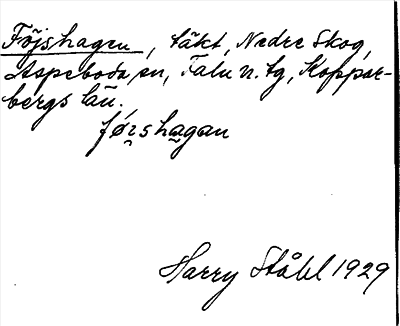 Föjshagen, täkt, Nedre Skog,
Aspeboda sn, Falu n. tg, Koppar-
bergs län.
føi̯shagan
Harry Ståhl 1929